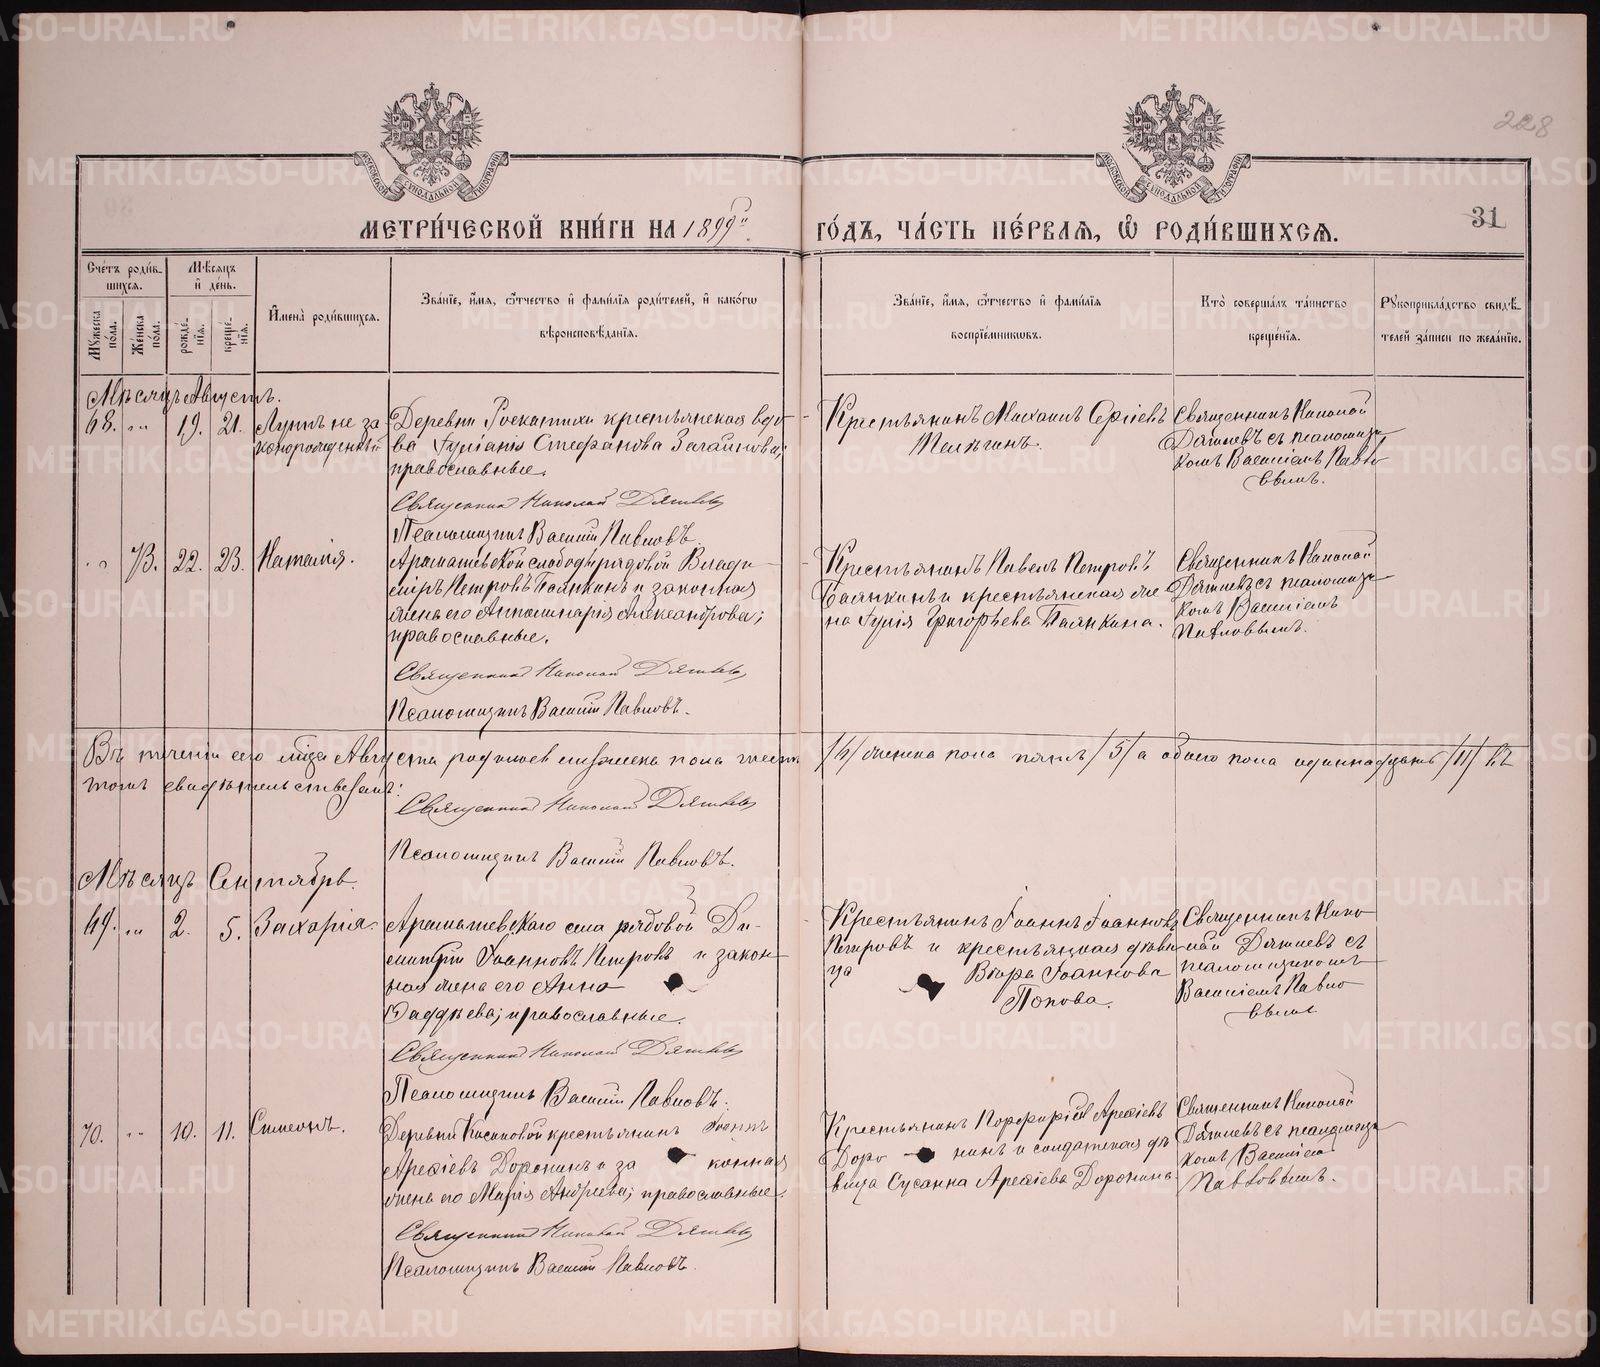 228
МЕТРИ́ЧЕСКОЙ КНИ́ГИ НА 1899й
ГО́ДЪ, ЧА́СТЬ ПЕ́РВАЯ, Ѽ РОДИ́ВШИХСЯ.
31
Сче́тъ роди́в-
шихся.
Мѣ́сяцъ
и҆ де́нь.
Му́жеска по́ла.
Же́нска по́ла.
рожде́-
нїя.
креще́-
нїя.
И҆мена̀ роди́вшихся.
Зва́нїе, и҆́мя, ѻ҆́тчество и҆ фами́лїя роди́телей, и҆ како́гѡ
вѣроисповѣ́данїя.
Зва́нїе, и҆́мя, ѻ҆́тчество и҆ фами́лїя
воспрїе́мникѡвъ.
Кто̀ соверша́лъ та́инство
креще́нїя.
Рꙋкоприкла́дство свидѣ́-
телей за́писи по жела́нїю.
Мѣсяцъ Августъ.
68. „ „ 19. 21. Луппъ неза
конорожденный
Деревни Роскатихи крестьянская вдо-
ва Іуліанія Стефанова Загайнова;
православные.
Священникъ Николай Дягилевъ
Псаломщикъ Василій Павловъ.
Крестьянинъ Михаилъ Сергіевъ
Телѣгинъ.
Священникъ Николай
Дягилевъ съ псаломщи
комъ Василіемъ Павло
вымъ.
„ „ 73. 22. 23. Наталія.
Арамашевской слободы рядовой Влади-
міръ Петровъ Паянкинъ и законная
жена его Апполинарія Александрова;
православные.
Священникъ Николай Дягилевъ
Псаломщикъ Василій Павловъ.
Крестьянинъ Павелъ Петровъ
Паянкинъ и крестьянская же
на Іулія Григорьева Паянкина.
Священникъ Николай
Дягилевъ съ псаломщи
комъ Василіемъ
Павловымъ.
Въ теченіи сего м-ца Августа родилось мужеска пола шесть /6/ женска пола пять /5/ а обоего пола одиннадцать /11/ въ
томъ свидѣтельствуемъ:
Священникъ Николай Дягилевъ
Псаломщикъ Василій Павловъ.
Мѣсяцъ Сентябрь.
69. „ „ 2. 5. Захарія.
Арамашевскаго села рядовой Ди-
митрій Іоанновъ Петровъ и закон-
ная жена его Анна
Фаддѣева; православные.
Священникъ Николай Дягилевъ
Псаломщикъ Василій Павловъ.
Крестьянинъ Іоаннъ Іоанновъ
Петровъ и крестьянская дѣви
ца Вѣра Іоаннова
Попова.
Священникъ Нико
лай Дягилевъ съ
псаломщикомъ
Василіемъ Павло
вымъ
70. „ „ 10. 11. Симеонъ.
Деревни Косиковой крестьянинъ Іоаннъ
Арефіевъ Доронинъ и за конная
жена его Марія Андреева; православные.
Священникъ Николай Дягилевъ
Псаломщикъ Василій Павловъ.
Крестьянинъ Порфирій Арефіевъ
Доро нинъ и солдатская дѣ
вица Сусанна Арефіева Доронина.
Священникъ Николай
Дягилевъ съ псаломщи
комъ Василіемъ
Павловымъ.